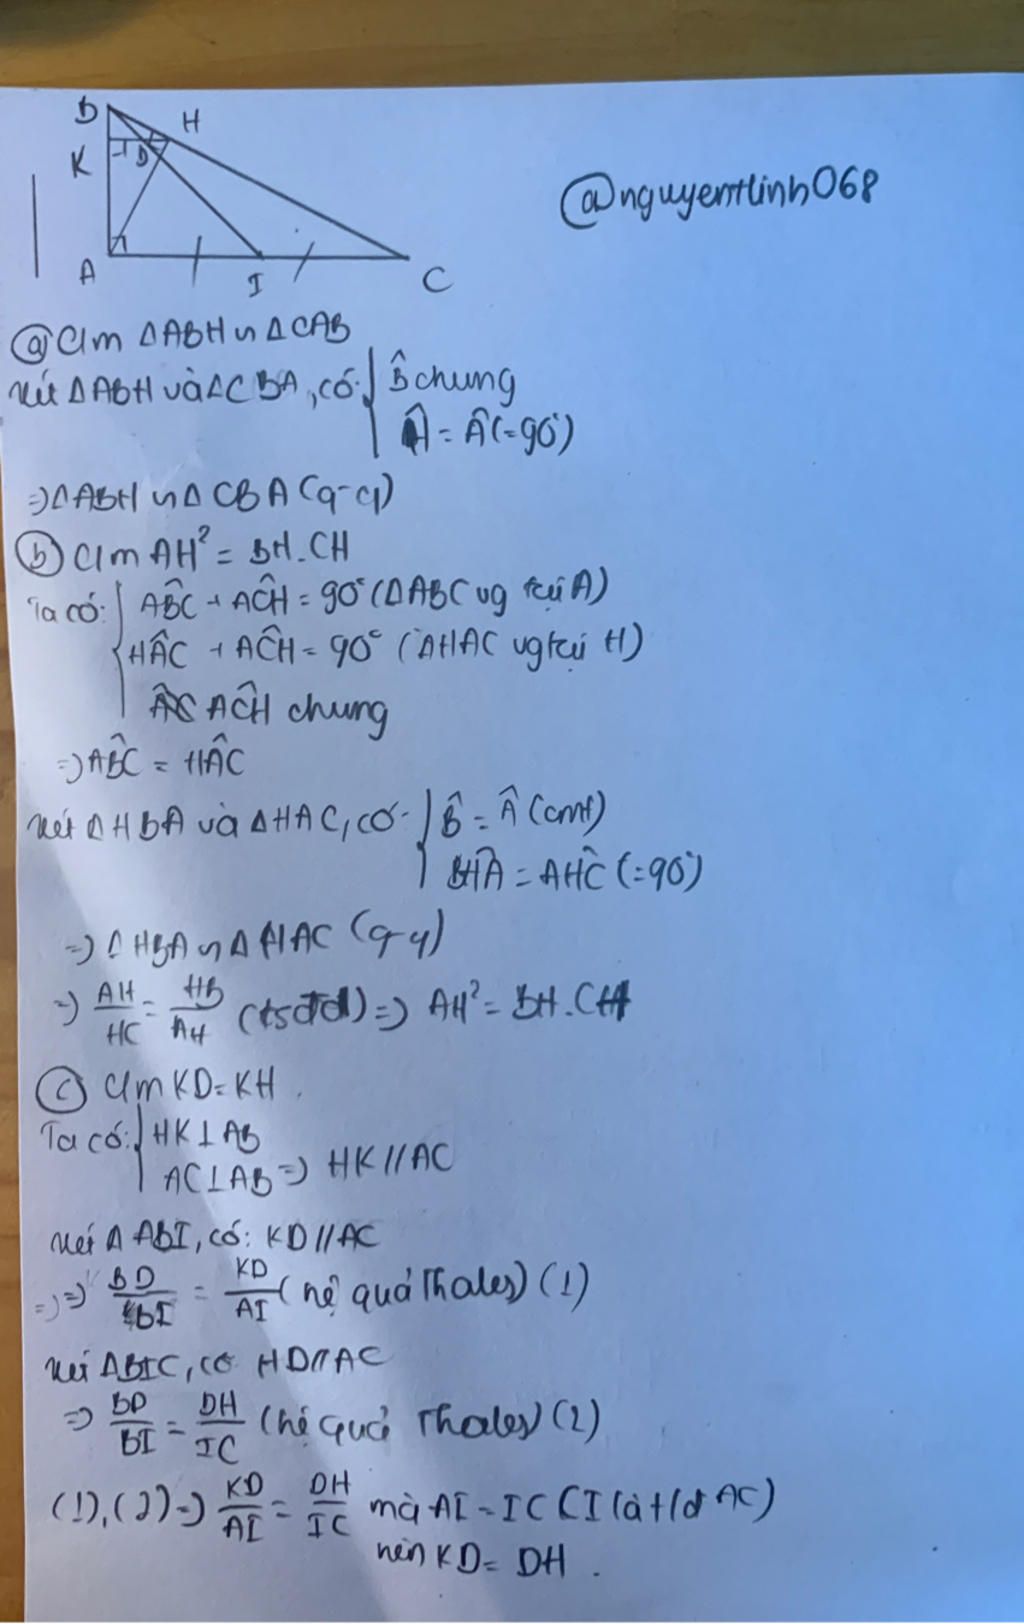 B
H
K
D
@nguyentlinh068
A
I
C
ⓐ Clm ΔABH ∽ ΔCAB
Xét ΔABH và ΔCBA, có: { B̂ chung
Ĥ = Â (=90°)
=> ΔABH ∽ ΔCBA (g-g)
ⓑ Clm AH² = BH.CH
Ta có: { AB̂C + AĈH = 90° (ΔABC vg tại A)
HÂC + AĈH = 90° (ΔHAC vg tại H)
AĈH chung
=> AB̂C = HÂC
Xét ΔHBA và ΔHAC, có: { B̂ = Â (cmt)
BĤA = AĤC (=90°)
=> ΔHBA ∽ ΔHAC (g-g)
=> AH/HC = HB/AH (tsđd) => AH² = BH.CH
ⓒ Clm KD = KH.
Ta có: { HK ⊥ AB
AC ⊥ AB => HK // AC
Xét ΔABI, có: KD // AC
=> => BD/BI = KD/AI (hệ quả Thales) (1)
Xét ΔBIC, có HD // AC
=> BD/BI = DH/IC (hệ quả Thales) (2)
(1), (2) => KD/AI = DH/IC mà AI = IC (I là t/đ AC)
nên KD = DH.